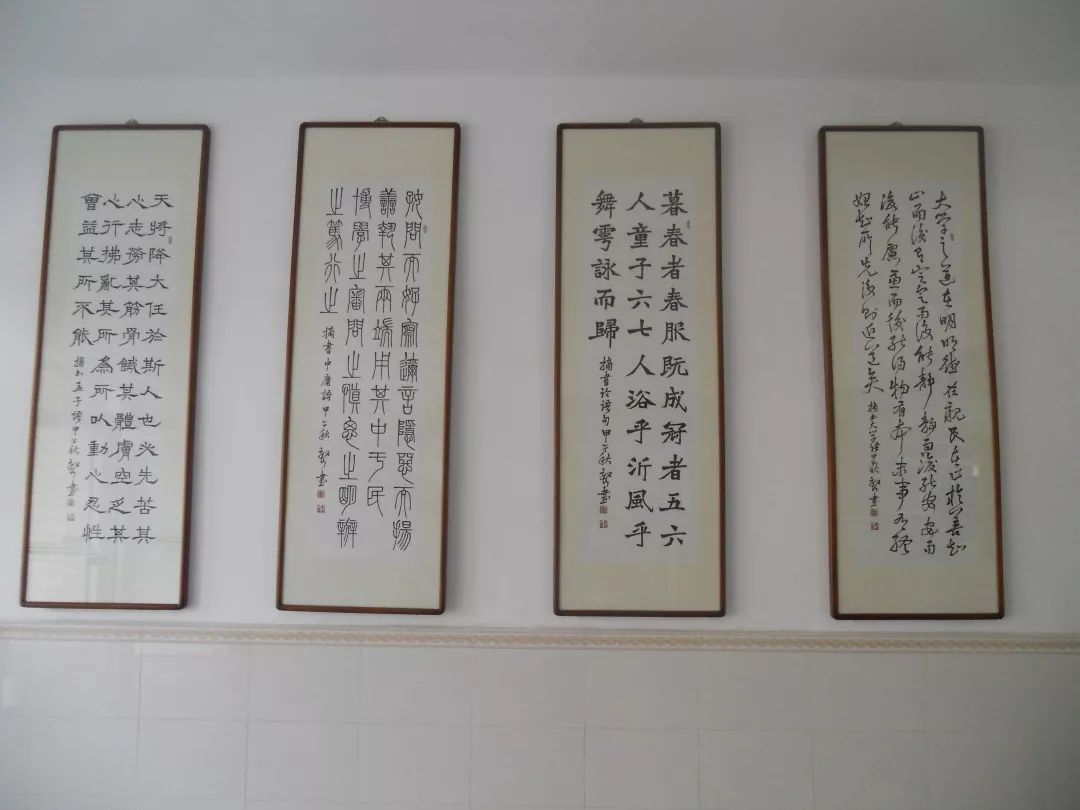 大學之道在明明德在親民在止於至善知
止而後有定定而後能靜靜而後能安安而
後能慮慮而後能得物有本末事有終
始知所先後則近道矣
摘書大學語甲午秋書
暮春者春服既成冠者五六
人童子六七人浴乎沂風乎
舞雩詠而歸
摘書論語句甲午秋書
好問而好察邇言隱惡而揚
善執其兩端用其中于民
博學之審問之慎思之明辨
之篤行之
摘書中庸語甲午秋書
天將降大任於斯人也必先苦其
心志勞其筋骨餓其體膚空乏其
身行拂亂其所為所以動心忍性
曾益其所不能
摘書孟子語甲午秋書